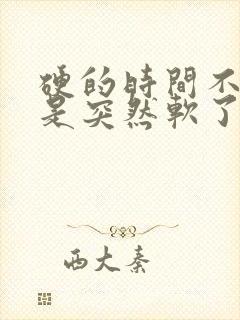 硬的時間不
是突然軟了
西大秦